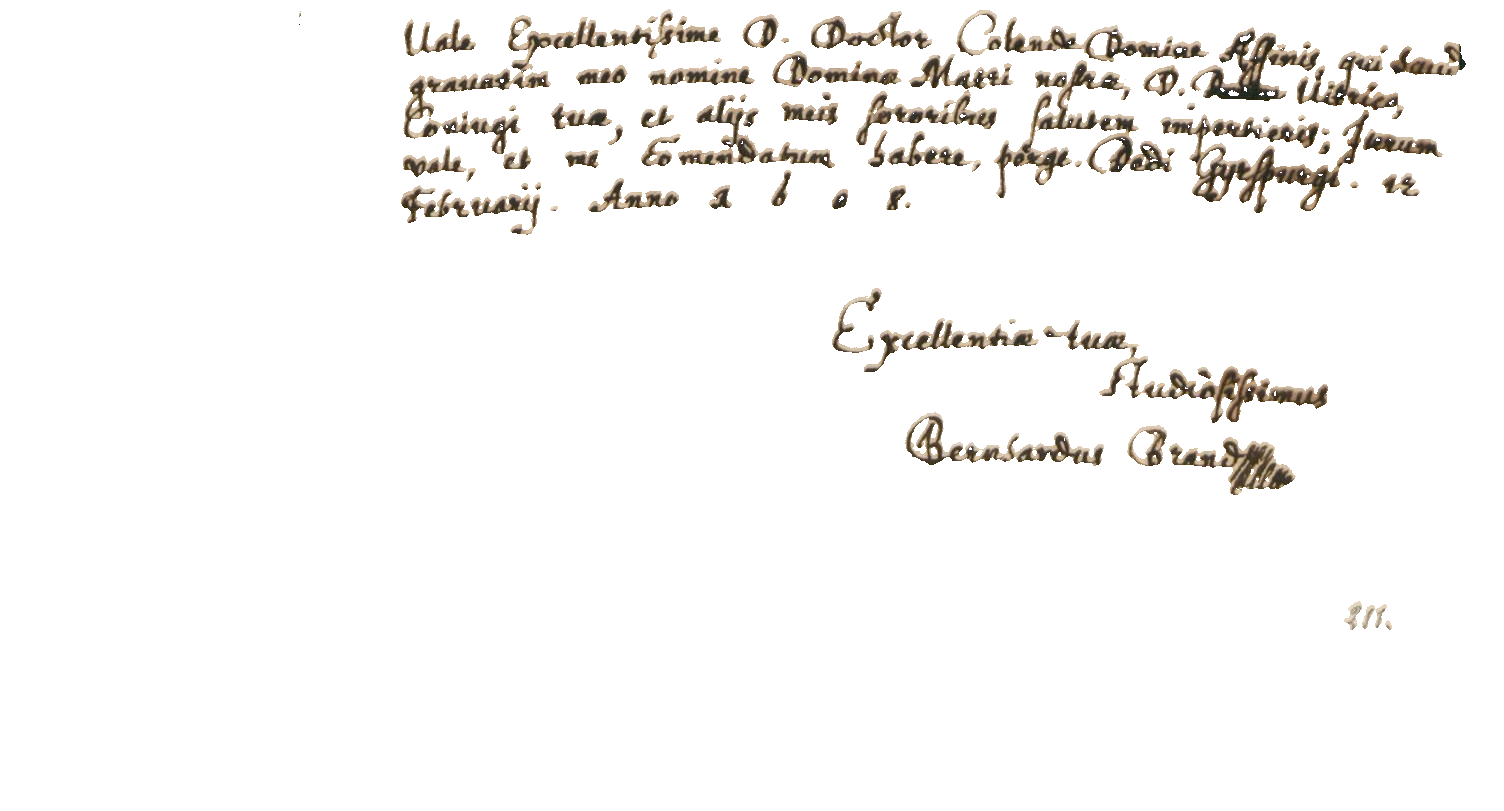 Vale Excellentissime D. Doctor Colende Domine Affinis, qui haud
grauatim meo nomine Dominæ Matri nostræ, D. Vitrico,
Coniugi tuæ, et alijs meis sororibus salutem impertieris; Iterum
vale, et me Cõmendatum habere, perge. Dedi 12
Februarij. Anno 1608.
Excellentiæ tuæ,
Studiosissimus
Bernhardus Brand
211.